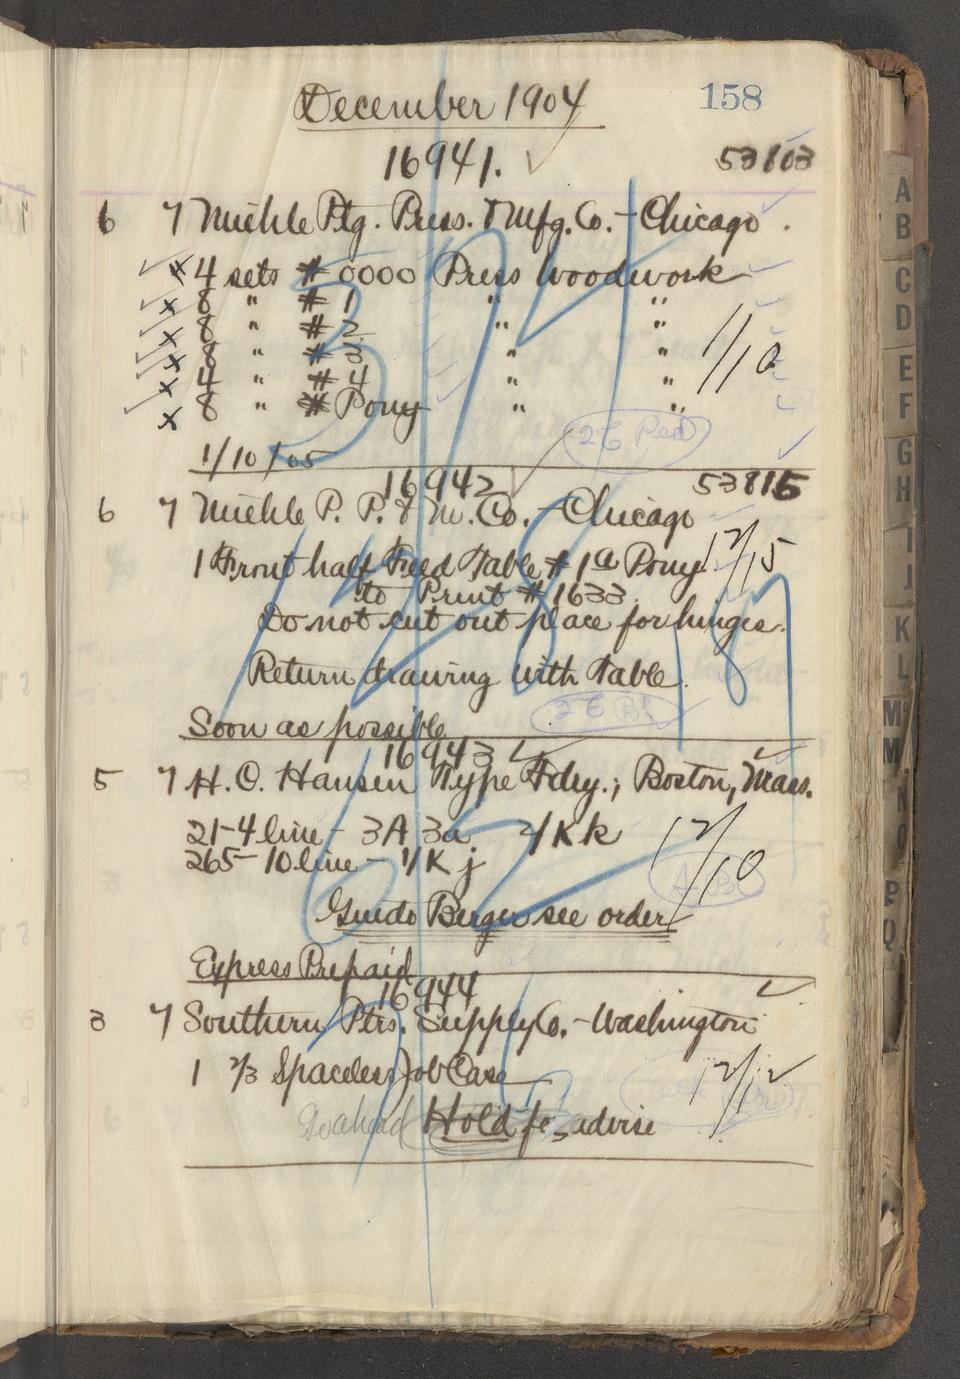 December 1904
158
16941.
53803
6 7 Miehle Ptg. Press. & Mfg. Co. - Chicago.
4 sets # 0000 Press Woodwork
8 " # 1 " "
8 " # 2 " "
8 " # 3 " "
4 " # 4 " "
8 " # Pony " "
1/10
314
2 C Red
1/10/05
16942
53815
6 7 Miehle P. P. & M. Co. - Chicago
1 Front half Feed Table # 1a Pony
12/15
to Print # 1633.
Do not cut out place for hinges.
Return drawing with Table.
2 C Bl
Soon as possible
16943
5 7 H. C. Hansen Type Fdry.; Boston, Mass.
21-4 line - 3A 3a 2/K k
265-10 line - 1/K j
12/10
Guido Berger see order
Express Prepaid
16944
3 7 Southern Ptrs. Supply Co. - Washington
1 2/3 Spaceless Job Case
12/12
Go ahead Hold fe advise
A
B
C
D
E
F
G
H
I
J
K
L
M
M
N
O
P
Q